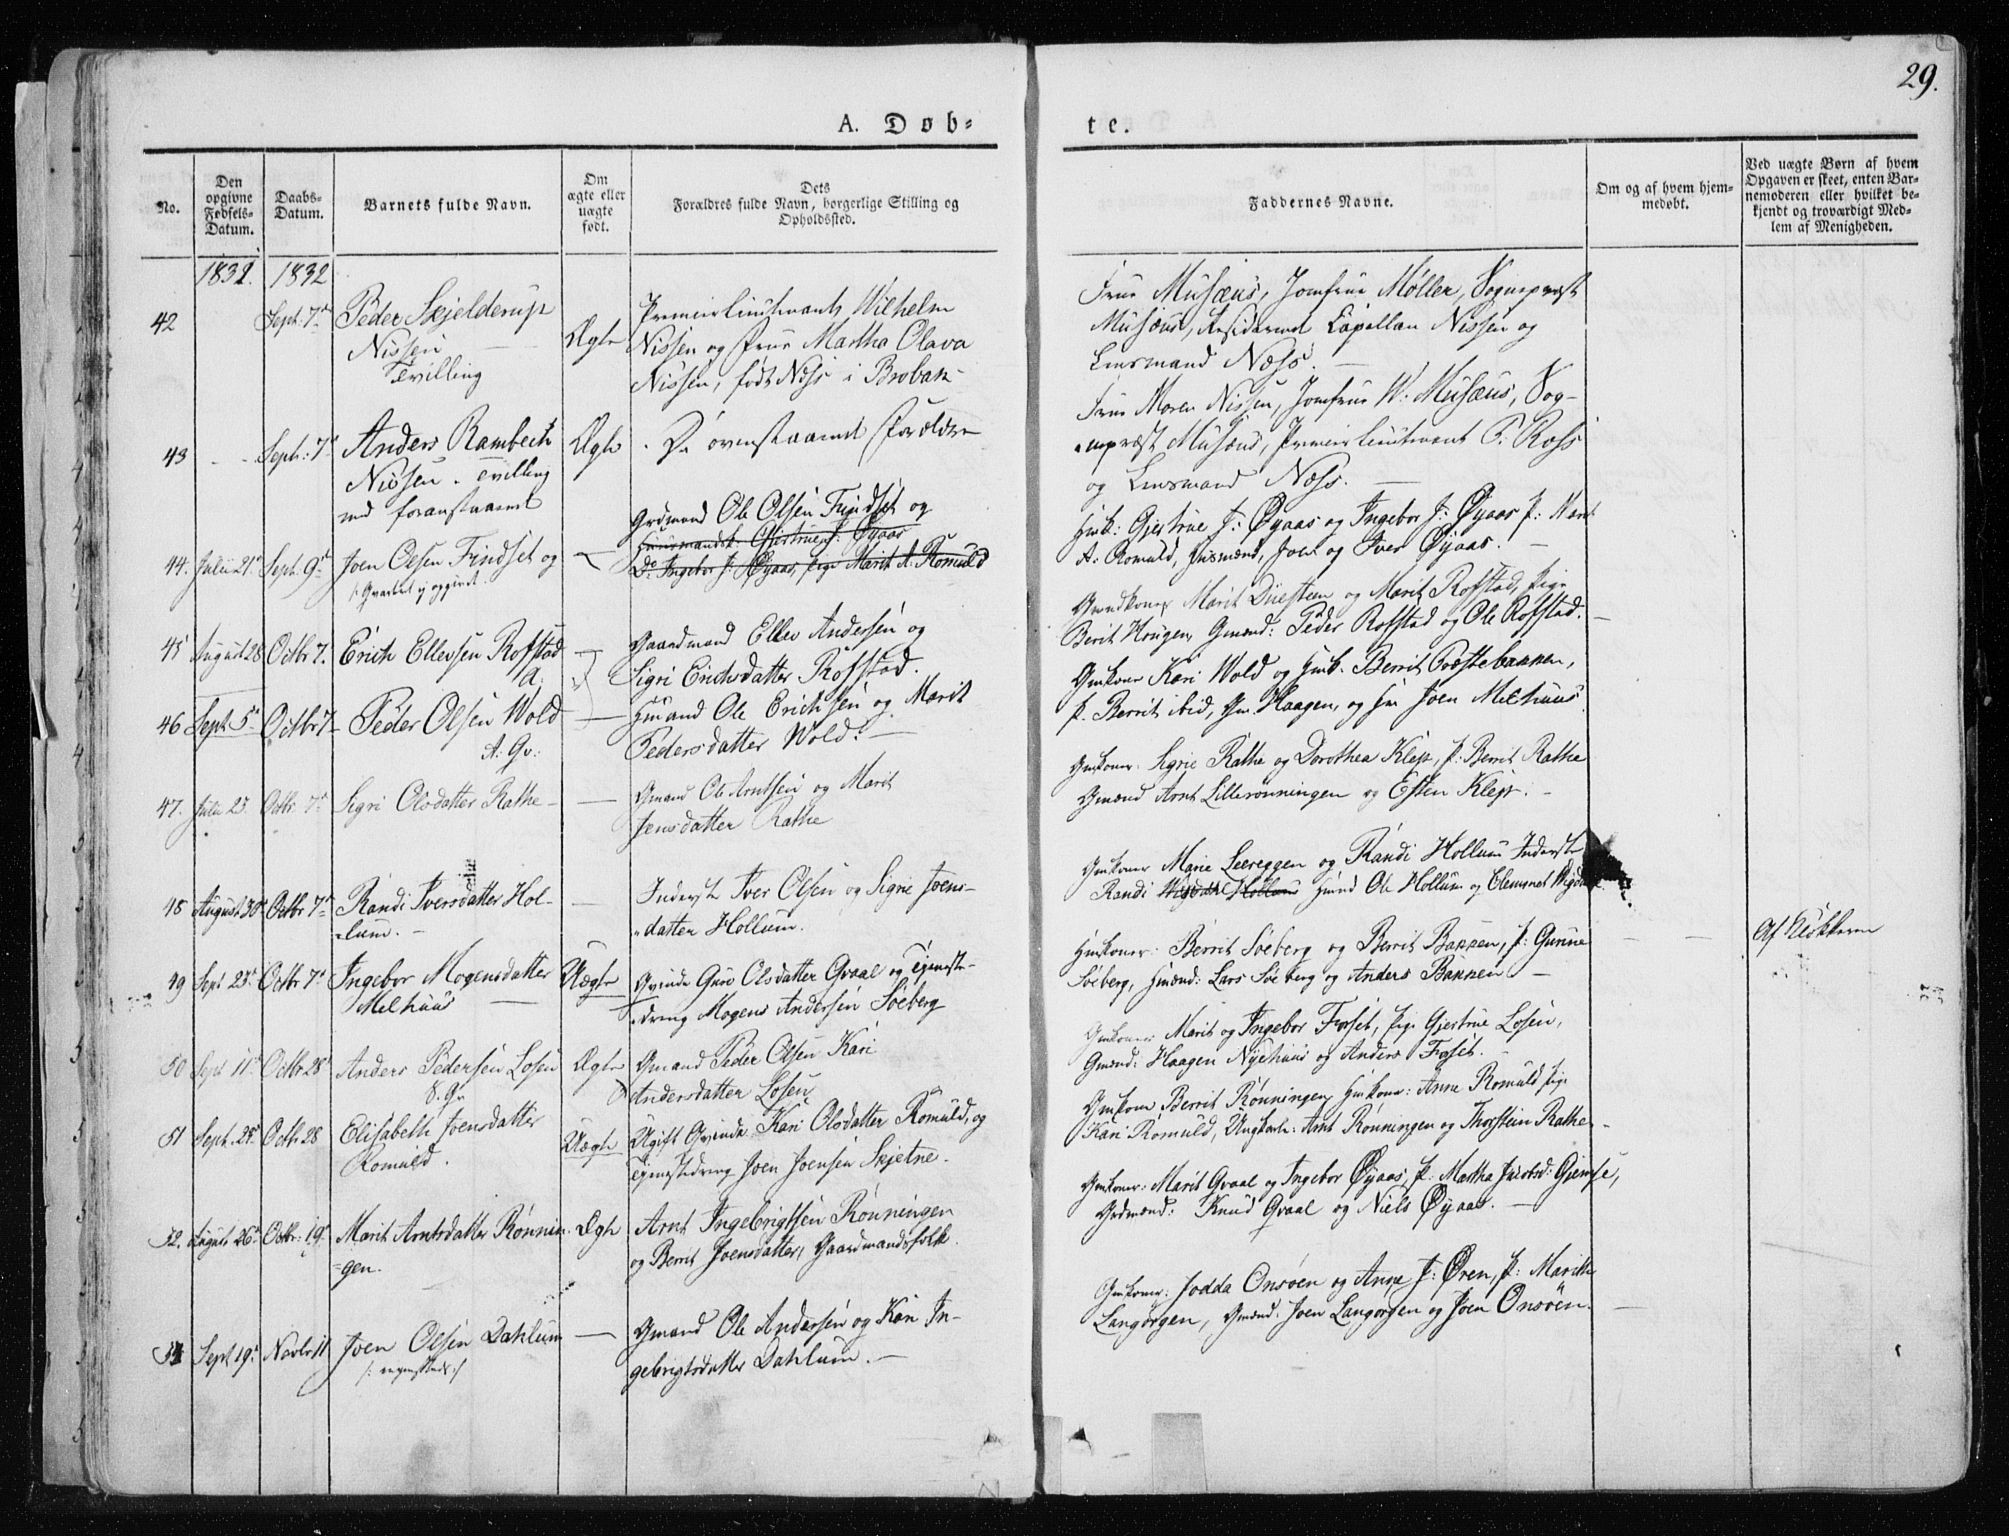 29.
A. Døb-
te.
No.
Den opgivne Fødsels-Datum.
Daabs-Datum.
Barnets fulde Navn.
Om ægte eller uægte født.
Dets Forældres fulde Navn, borgerlige Stilling og Opholdssted.
Faddernes Navne.
Om og af hvem hjemmedøbt.
Ved uægte Børn af hvem Opgaven er skeet, enten Barnemoderen eller hvilket bekjendt og troværdigt Medlem af Menigheden.
1832. 1832
42 Sept. 7de Peder Skjelderup
Nissen
Tvilling
Ægte
Premierlieutenants Wilhelm
Nissen og Frue Martha Olava
Nissen, født Næss i Brobak
Frue Musæus, Jomfrue Møller, Sognepræst
Musæus, Residerende Capellan Nissen og
Lensmand Næss.
43 Sept: 7de Anders Rambech
Nissen. Tvilling
med foranstaaende
Ægte
De ovenstaaende Forældre
Frue Maren Nissen, Jomfrue W. Musæus, Sog-
nepræst Musæus, Premierlieutenant Ross
og Lensmand Næss.
44. Julii 21de Sept. 9de Joen Olsen Frindset og
Grdmand Ole Olsen Frindset og
Huusmandsk. Gjertrue J: Øyaas
Do Ingebor J: Øyaas, pige Marit A: Romuld
Hmk: Gjertrue J: Øyaas og Ingebor J: Øyaas P: Marit
A: Romuld, Husmænd, Joen og Iver Øyaas.
45 August 28 Octbr 7. Erich Ellevsen Rofstad
A.
Gaardmand Ellev Andersen og
Sigri Erichsdatter Rofstad.
Gmdkoner Marit Duesteen og Marit Rofstad, Pige
Berit Hougen, Gmænd: Peder Rofstad og Ole Rofstad.
46 Sept. 5te Octbr 7 Peder Olsen Wold
A: Gv:
Hmand Ole Erichsen og Marit
Pedersdatter Wold.
Gmkone Kari Wold og Hmk. Berrit Præstebakken,
P. Berrit ibid, Gm. Haagen, og Hm Joen Melhuus.
47. Julii 25. Octbr 7de Sigri Olsdatter Rathe
Gmand Ole Arntsen og Marit
Jensdatter Rathe
Gmkoner. Sigrie Rathe og Dorothea Klep, P: Berrit Rathe
Gmænd Arnt Lillerønningen og Esten Klep.
48 August 30te Octbr 7de Randi Iversdatter Hol-
lum.
Inderste Iver Olsen og Sigrie Joens-
datter Hollum.
Gmkoner Marie Leereggen og Randi Hollum Inderste
Randi Wigdahl Hollum Hmænd Ole Hollum og Clemmet
49 Sept 23de Octbr 7de Ingebor Mogensdatter
Melhuus
Uægte
Qvinde Guro Olsdatter Qvaal og Tjeneste-
dreng Mogens Andersen Søeberg
Hmkoner: Berrit Søeberg og Berrit Bakken, P: Gurine
Søeberg, Hmænd: Lars Søeberg og Anders Bakken
Af Klokkeren
50 Sept 11te Octbr 28de Anders Pedersen Losen
Ægte
Gmand Peder Olsen Kari
Andersdatter Losen
Gmkoner Marit og Ingebor Forset, Pige Gjertrue Losen,
Gmænd: Haagen Nyehuus og Anders Forset.
51 Sept. 24de Octb 28 Elisabeth Joensdatter
Romuld.
Uægte
Ugift Qvinde Kari Olsdatter Romuld, og
Tjenestedreng Joen Joensen Skjetne.
Gmkone Berrit Rønningen, Hmkone: Anne Romuld Pige
Kari Romuld, Ungkarle: Arnt Rønningen og Thorstein Rathe
52. August 26de Octbr. 19de Marit Arntsdatter Rønnin-
gen.
Ægte
Arnt Ingebrigtsen Rønningen
og Berrit Joensdatter, Gaardmandsfolk.
Gmkoner: Marit Qvaal og Ingebor Øyaas, P. Martha Jacobsd: Gjemse,
Grdmænd: Knud Qvaal og Niels Øyaas.
Sept 19de Novbr 11 Joen Olsen Dahlum
Gmand Ole Andersen og Kari In-
gebrigtsdatter Dahlum.
Gmkoner: Jodda Onsøen og Anne J: Øren, P: Marith
Langørgen, Gmænd. Joen Langørgen og Joen Onsøen.